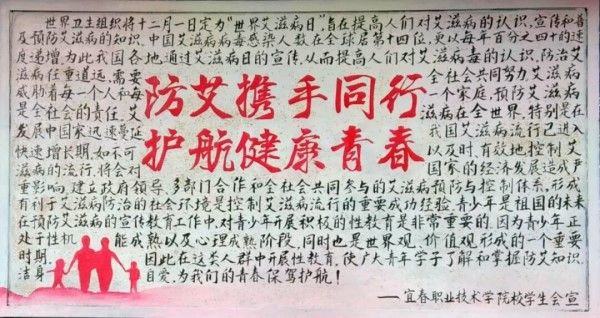 世界卫生组织将十二月一日定为“世界艾滋病日”旨在提高人们对艾滋病的认识.宣传和普
及预防艾滋病的知识.中国艾滋病病毒感染人数在全球居第十四位,更以每年百分之四十的速
度递增.为此我国各地,通过艾滋病日的宣传,从而提高人们对艾滋病毒的认识.防治艾
滋病任重道远,需要 全社会共同努力,艾滋病
威胁着每一个人和每 一个家庭,预防艾滋病
是全社会的责任,艾 滋病在全世界,特别是在
发展中国家迅速蔓延 我国艾滋病流行已进入
快速增长期,如不可 以及时,有效地控制艾
滋病的流行,将会对 国家的经济发展造成严
防艾携手同行
护航健康青春
重影响,建立政府领导,多部门合作和全社会共同参与的艾滋病预防与控制体系,形成
有利于艾滋病防治的社会环境是控制艾滋病流行的重要成功经验.青少年是祖国的未来
在预防艾滋病的宣传教育工作中,对青少年开展积极的性教育是非常重要的.因为青少年正
处于性机 能成熟以及心理成熟阶段,同时也是世界观,价值观形成的一个重要
时期. 因此在这类人群中开展性教育,使广大青年学子了解和掌握防艾知识.
洁身 自爱,为我们的青春保驾护航!
——宜春职业技术学院校学生会宣